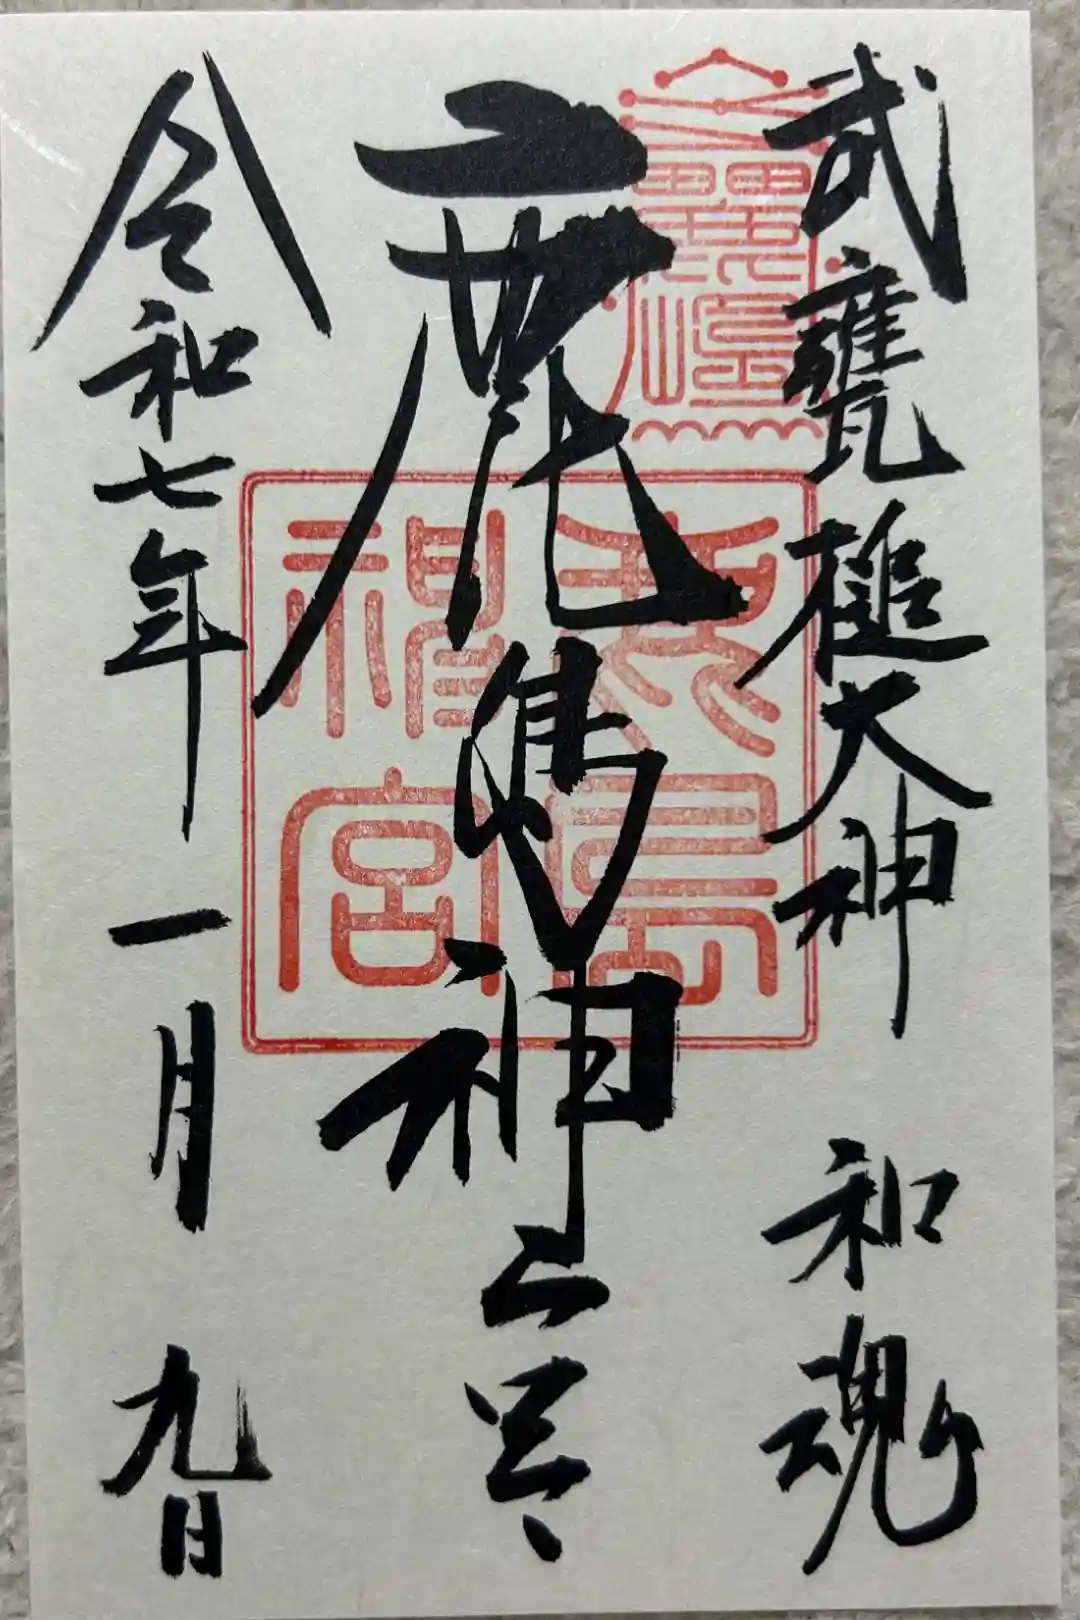 武甕槌大神　和魂
鹿島神宮
令和七年一月九日